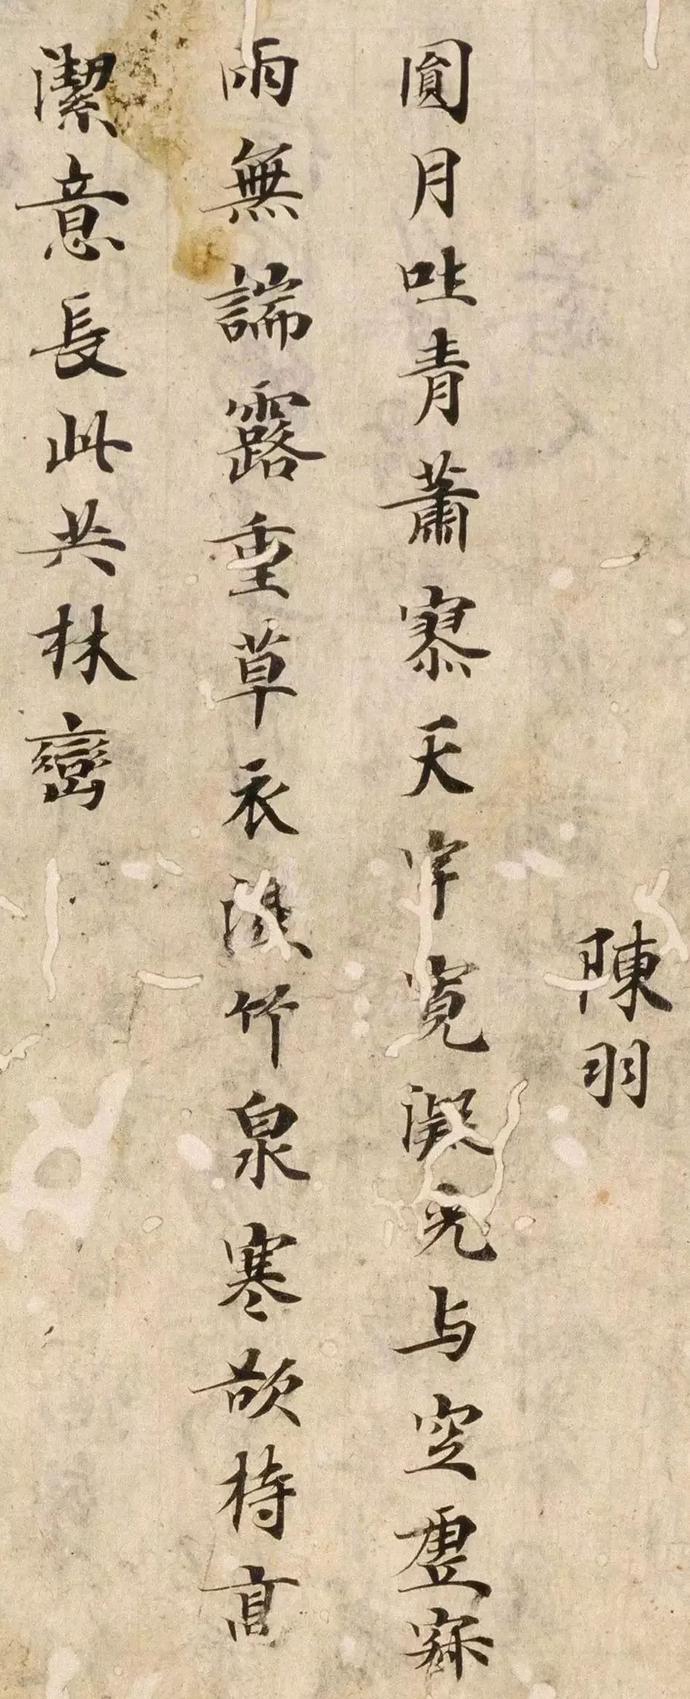 陳羽
圓月吐青蕭寥天宇寬凝光与空虛寂
兩無端露重草衣竹泉寒欲持高
潔意長此共林巒